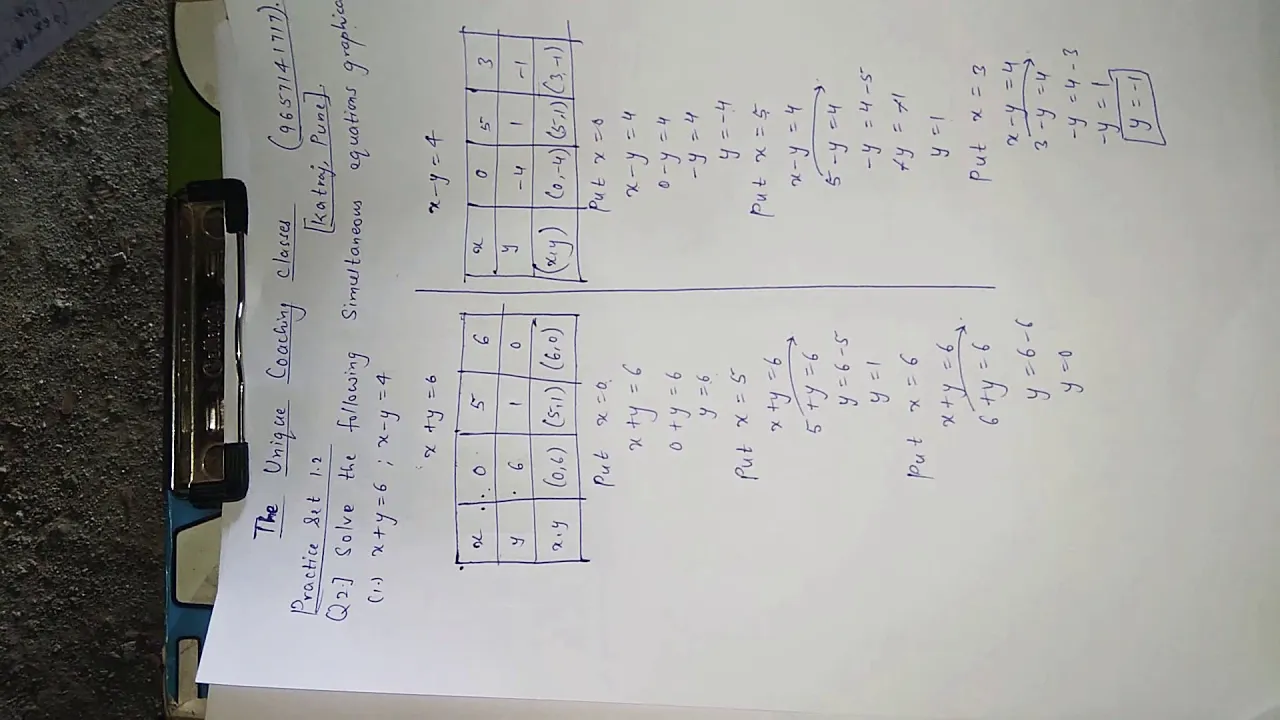 The Unique Coaching Classes (9657141717).
[Katraj, Pune]
Practice Set 1.2
Q2.] Solve the following Simultaneous equations
(1.) x+y=6 ; x-y=4
x+y=6
x 0 5 6
y 6 1 0
x,y (0,6) (5,1) (6,0)
Put x=0
x+y=6
0+y=6
y=6
Put x=5
x+y=6
5+y=6
y=6-5
y=1
Put x=6
x+y=6
6+y=6
y=6-6
y=0
x-y=4
x 0 5 3
y -4 1 -1
(x,y) (0,-4) (5,1) (3,-1)
Put x=0
x-y=4
0-y=4
-y=4
y=-4
Put x=5
x-y=4
5-y=4
-y=4-5
+y=+1
y=1
Put x=3
x-y=4
3-y=4
-y=4-3
-y=1
y=-1